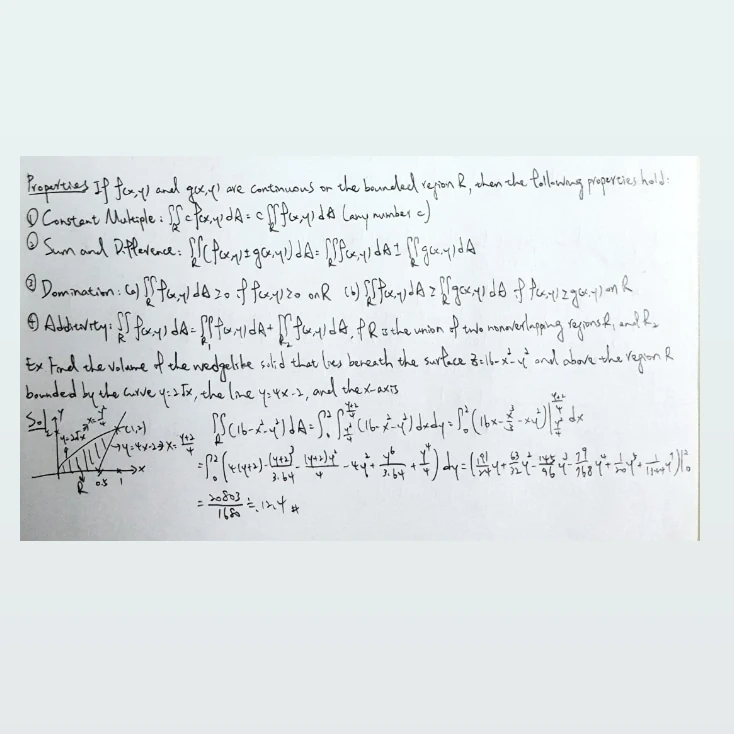 Properties If f(x,y) and g(x,y) are continuous on the bounded region R, then the following properties hold:
① Constant Multiple: ∬_R c f(x,y) dA = c ∬_R f(x,y) dA (any number c)
② Sum and Difference: ∬_R (f(x,y) ± g(x,y)) dA = ∬_R f(x,y) dA ± ∬_R g(x,y) dA
③ Domination: (a) ∬_R f(x,y) dA ≥ 0 if f(x,y) ≥ 0 on R (b) ∬_R f(x,y) dA ≥ ∬_R g(x,y) dA if f(x,y) ≥ g(x,y) on R
④ Additivity: ∬_R f(x,y) dA = ∬_R₁ f(x,y) dA + ∬_R₂ f(x,y) dA, if R is the union of two nonoverlapping regions R₁ and R₂
Ex Find the volume of the wedgelike solid that lies beneath the surface z = 16 - x² - y² and above the region R
bounded by the curve y = 2√x, the line y = 4x - 2, and the x-axis
Sol y 2 y = 2√x → x = y²/4 (1,2) → y = 4x - 2 → x = (y+2)/4 x R 0.5 1
∬_R (16 - x² - y²) dA = ∫_0^2 ∫_{y²/4}^{(y+2)/4} (16 - x² - y²) dx dy = ∫_0^2 (16x - x³/3 - xy²) |_{y²/4}^{(y+2)/4} dx
= ∫_0^2 (4(y+2) - (y+2)³/(3·64) - (y+2)y²/4 - 4y² + y⁶/(3·64) + y⁴/4) dy = (191/24 y + 63/32 y² - 145/96 y³ - 49/768 y⁴ + 1/20 y⁵ + 1/1344 y⁷) |_0^2
= 20803/1680 ≐ 12.4 #